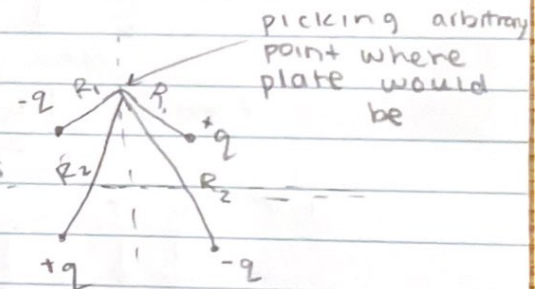 picking arbitrary
point where
plate would
be
-q R₁ R₁
+q
R₂ R₂
+q -q